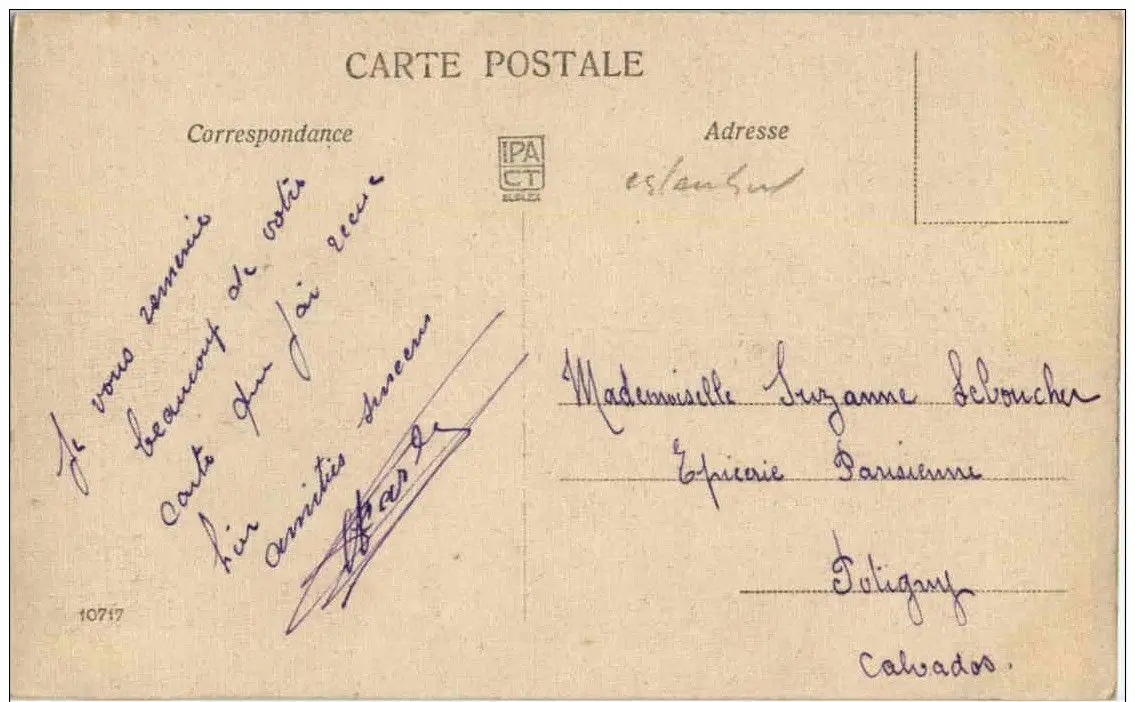 CARTE POSTALE
Correspondance
Adresse
IPA
CT
Je vous remercie
beaucoup de votre
carte que j'ai recue
hier
amitiés sinceres
Mademoiselle Suzanne Leboucher
Epicerie Parisienne
Potigny
Calvados.
10717